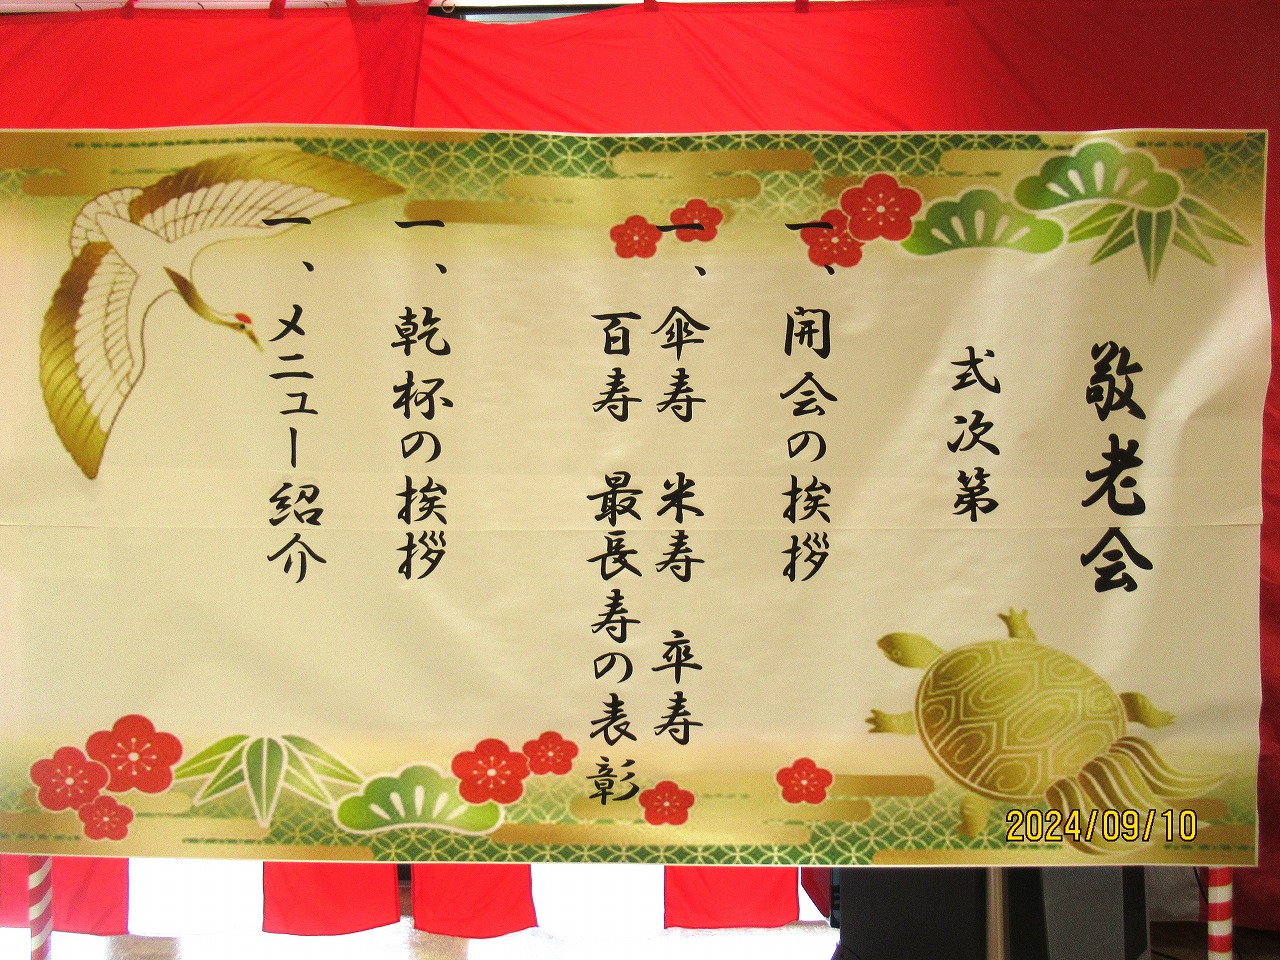 敬老会
式次第
一、開会の挨拶
一、傘寿　米寿　卒寿
百寿　最長寿の表彰
一、乾杯の挨拶
一、メニュー紹介
2024/09/10